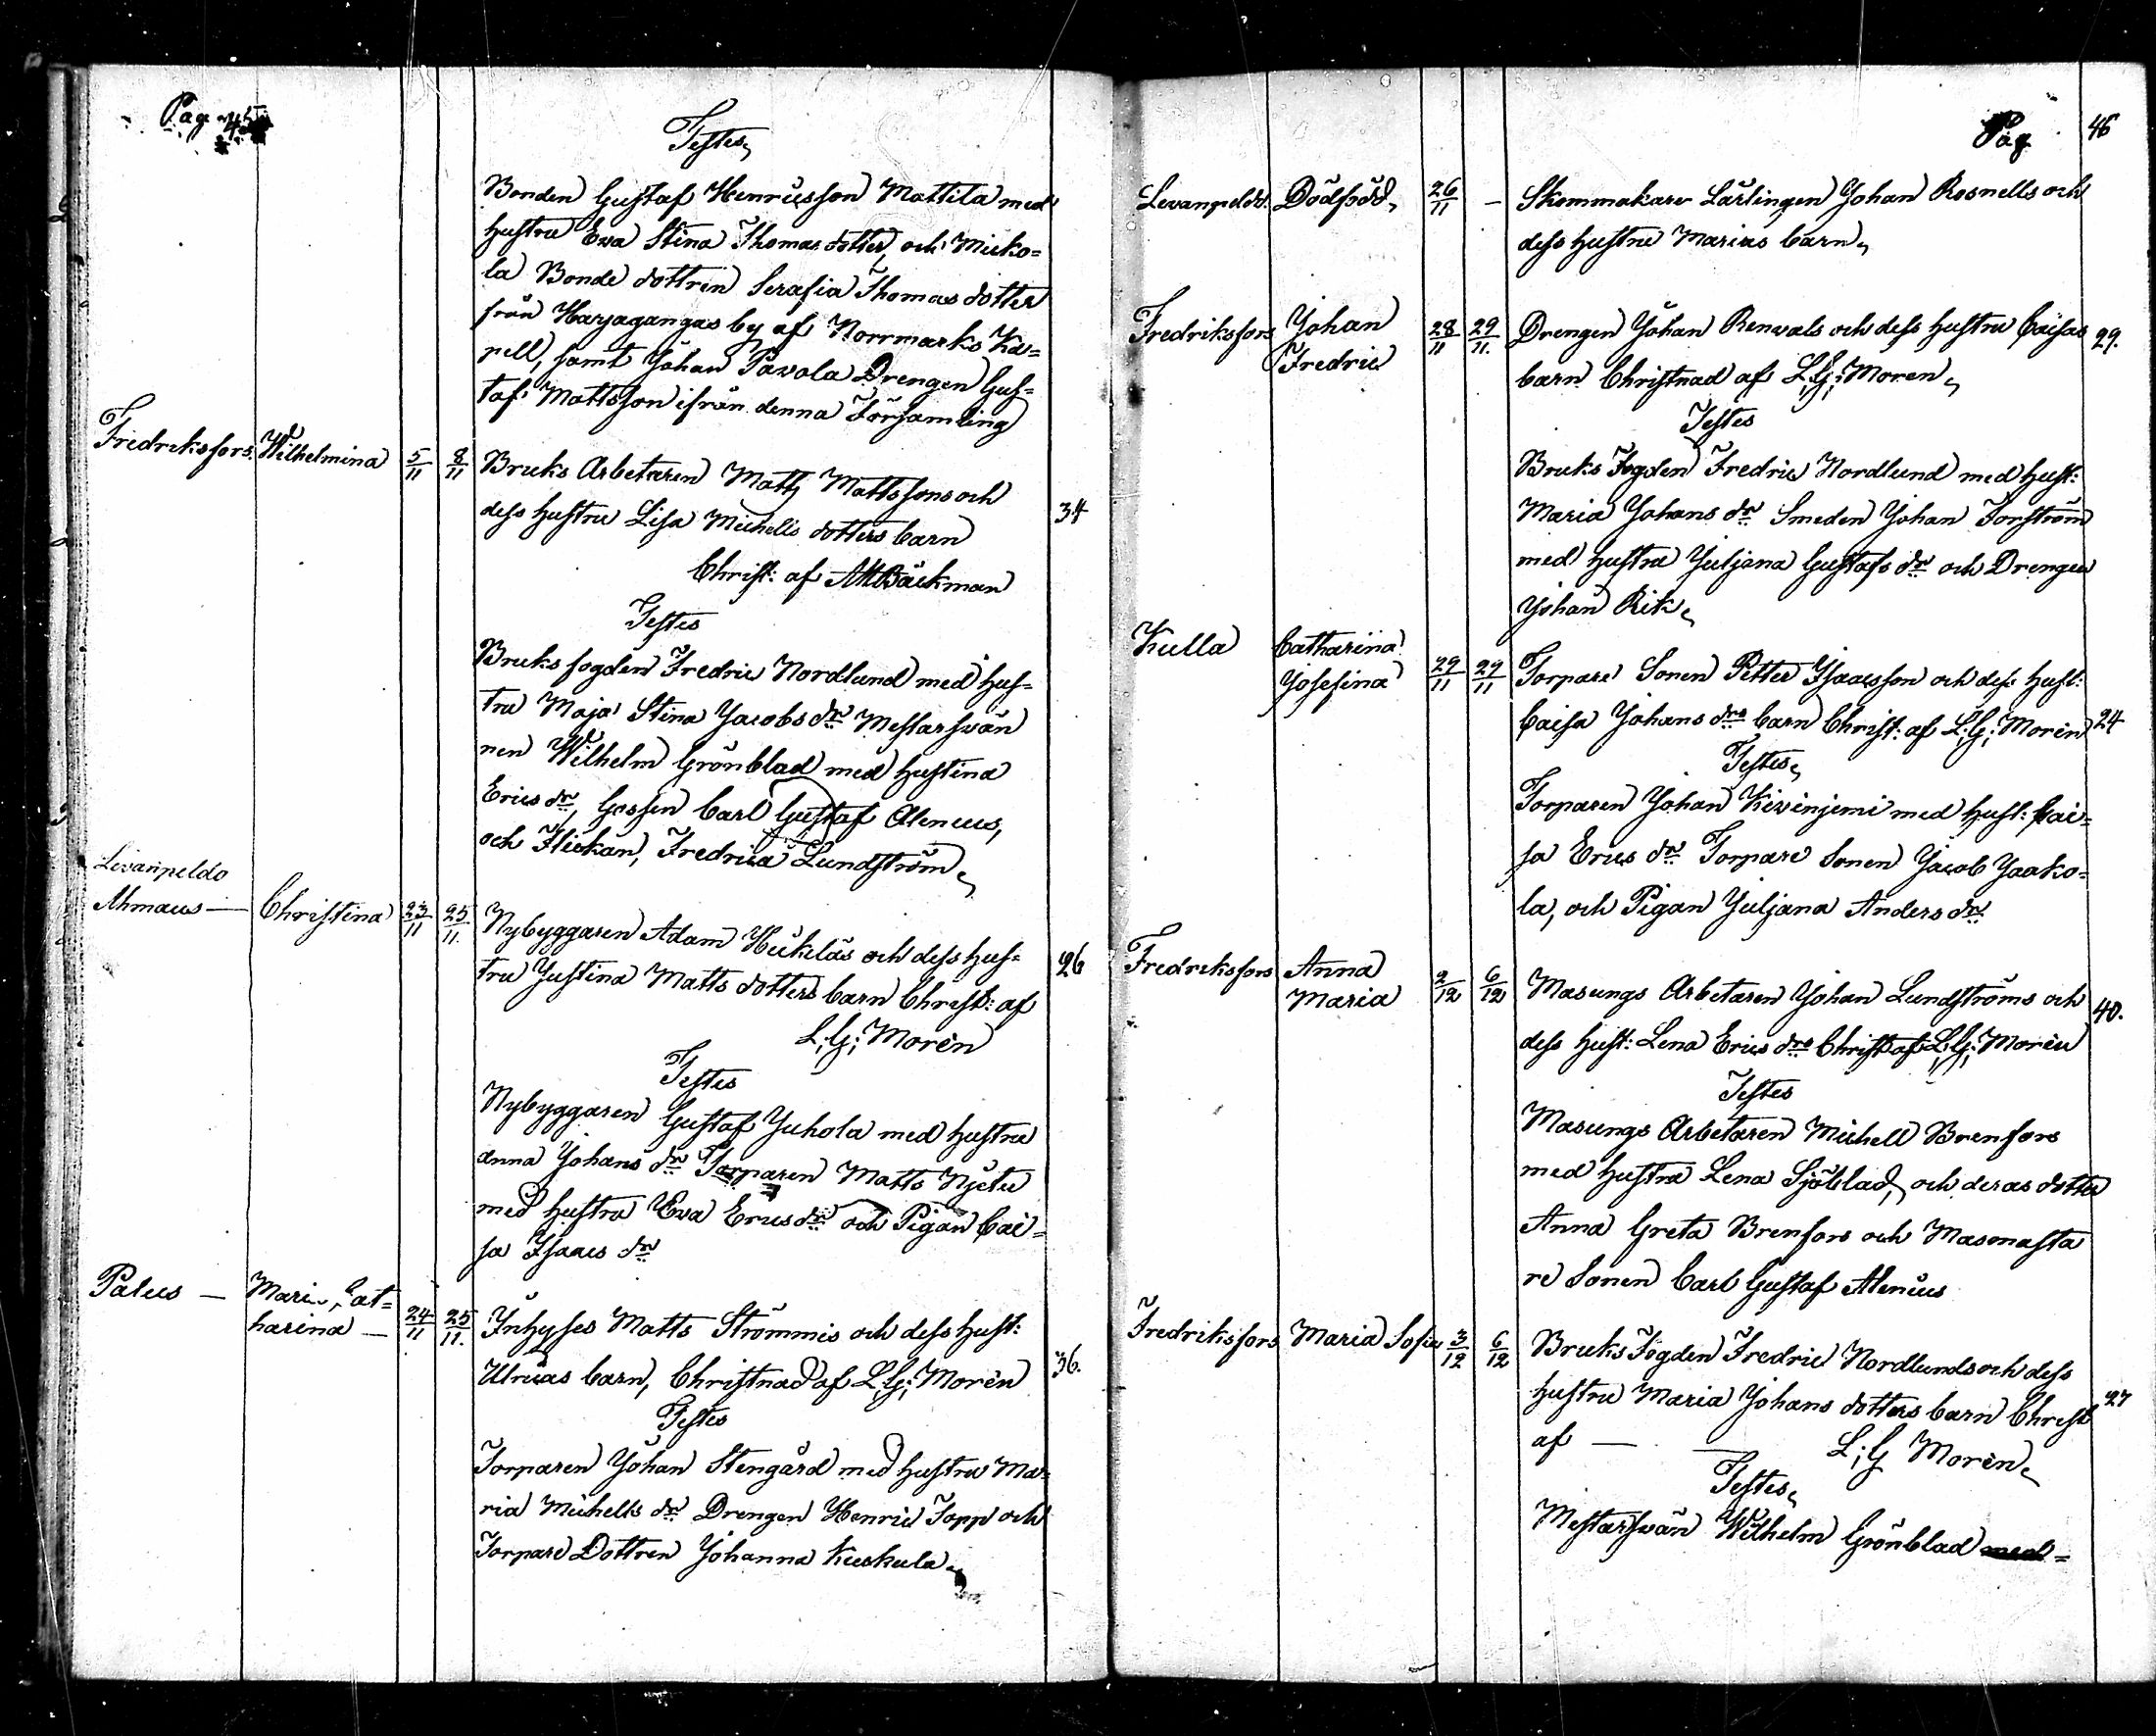 Pag 45
Testes,
Bonden Gustaf Henricsson Mattila med
hustru Ewa Stina Thomas dotter, och Micko=
la Bonde dottren Serafia Thomas dotter
från Harjagangas by af Norrmarks Ka=
pell, samt Johan Pavola Drengen Gus=
taf Mattsson ifrån denna Församling
Fredriksfors. Wilhelmina 5/11 8/11 Bruks Arbetaren Matts Mattssons och
dess hustru Lisa Michells dotters barn 34
Christ: af AMBäckman
Testes
Bruks fogden Fredric Nordlund med hus=
tru Maja Stina Jacobs dr Mestarswän
nen Wilhelm Grönblad med hustina
Erics dr, Gossen Carl Gustaf Alenius,
och Flickan, Fredrica Lundström,
Levanpeldo
Ahmaus — Christina 23/11 25/11. Nybyggaren Adam Heikiläs och dess hus=
tru Justina Matts dotters barn Christ: af 26
L;G; Morén
Testes
Nybyggaren Gustaf Juhola med hustru
Anna Johans dr Torparen Matts Njetu
med hustru Ewa Erics dr och Pigan Cai=
sa Isaacs dr
Palus — Maria Cat=
harina — 24/11 25/11. Inhyses Matts Strömmis och dess hust:
Ulricas barn, Christnad af L;G; Morén 36.
Testes
Torparen Johan Stengård med hustru Ma=
ria Michells dr Drengen Henric Topp och
Torpare Dottren Johanna Kuskula,
Pag 46
Levanpeldo. Dödfödd, 26/11 — Skommakare Lärlingen Johan Rosnells och
dess hustru Marias barn,
Fredriksfors Johan
Fredric 28/11 29/11. Drengen Johan Renvals och dess hustru Caisas 29.
barn Christnad af L;G; Moren,
Testes
Bruks Fogden Fredric Nordlund med hust:
Maria Johans dr Smeden Johan Forström
med hustru Juljana Gustafs dr och Drengen
Johan Rik,
Kulla Catharina
Josefina 29/11 29/11 Torpare Sonen Petter Isaacsson och dess hust:
Caisa Johans drs barn Christ: af L;G; Morén 24
Testes,
Torparen Johan Kivinjemi med hust: Cai=
sa Erics dr Torpare Sonen Jacob Jaako=
la, och Pigan Juljana Anders dr
Fredriksfors Anna
Maria 2/12 6/12 Masungs Arbetaren Johan Lundströms och 40.
dess hust: Lena Erics drs Christ af L;G; Morén
Testes
Masungs Arbetaren Michell Brenfors
med hustru Lena Sjöblad, och deras dotter
Anna Greta Brenfors och Masmästa
re Sonen Carl Gustaf Alenius
Fredriksfors Maria Sofia 3/12 6/12 Bruks Fogden Fredric Nordlunds och dess
hustru Maria Johans dotters barn Christ 27
af — — L;G Morén,
Testes,
Mestarswän Wilhelm Grönblad med=